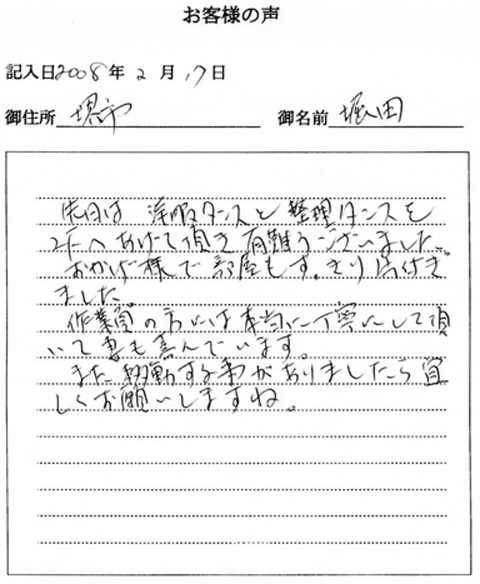 お客様の声
記入日2008年2月17日
御住所 堺市 御名前 堀田
先日は 洋服タンスと整理タンスを
2Fへあげて頂き有難うございました。
おかげ様で部屋もすっきり片付き
ました。
作業員の方には本当に丁寧にして頂
いて妻も喜んでいます。
また移動する事がありましたら宜
しくお願いしますね。